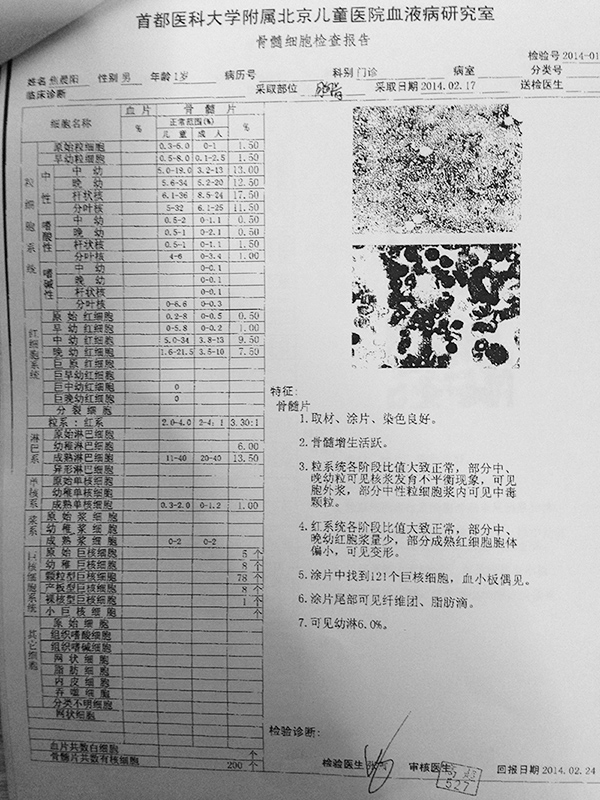 首都医科大学附属北京儿童医院血液病研究室
骨髓细胞检查报告
检验号 2014-01
姓名 焦晨阳 性别 男 年龄 1岁 病历号 科别 门诊 病室 分类号
临床诊断 采取部位 采取日期 2014.02.17 送检医生
细胞名称 血片 骨髓片
% 正常范围(%) %
儿童 成人
粒细胞系统
原始粒细胞 0.3-6.0 0-1 1.50
早幼粒细胞 0.5-8.0 0.1-2.5 1.50
中性 中幼 5.0-19.0 3.2-13 13.00
晚幼 5.6-34 5.2-20 12.50
杆状核 6.1-36 8.5-24 17.50
分叶核 5-32 6.1-25 11.50
嗜酸性 中幼 0.5-2 0-1.1 0.50
晚幼 0.5-1 0-2.1 0.50
杆状核 0.5-1 0-1.1 1.50
分叶核 4-6 0-3.4 1.00
嗜碱性 中幼 0-0.1
晚幼 0-0.1
杆状核 0-0.1
分叶核 0-6.6 0-0.3
红细胞系统
原始红细胞 0.2-8 0-0.5 0.50
早幼红细胞 0-5.8 0-0.2 1.00
中幼红细胞 5.0-34 3.8-13 9.50
晚幼红细胞 1.6-21.5 3.5-10 7.50
巨原红细胞
巨早幼红细胞
巨中幼红细胞 0
巨晚幼红细胞 0
分裂细胞
粒系：红系 2.0-4.0 2-4:1 3.30:1
淋巴系
原始淋巴细胞
幼稚淋巴细胞 6.00
成熟淋巴细胞 11-40 20-40 13.50
异形淋巴细胞
单核系
原始单核细胞
幼稚单核细胞
成熟单核细胞 0.3-2.0 0-1.2 1.00
浆系
原始浆细胞
幼稚浆细胞
成熟浆细胞 0-2 0-2
巨核细胞系统
原始巨核细胞 5 个
幼稚巨核细胞 8 个
颗粒型巨核细胞 78 个
产板型巨核细胞 8 个
裸核型巨核细胞 1 个
小巨核细胞 个
其它细胞
原始细胞
组织嗜酸细胞
组织嗜碱细胞
网状细胞
脂肪细胞
内皮细胞
吞噬细胞
分类不明细胞
网状细胞
血片共数白细胞 个
骨髓片共数有核细胞 200 个
特征：
骨髓片
1. 取材、涂片、染色良好。
2. 骨髓增生活跃。
3. 粒系统各阶段比值大致正常，部分中、
晚幼粒可见核浆发育不平衡现象，可见
胞外浆，部分中性粒细胞浆内可见中毒
颗粒。
4. 红系统各阶段比值大致正常，部分中、
晚幼红胞浆量少，部分成熟红细胞胞体
偏小，可见变形。
5. 涂片中找到121个巨核细胞，血小板偶见。
6. 涂片尾部可见纤维团、脂肪滴。
7. 可见幼淋6.0%。
检验诊断：
检验医生 审核医生 回报日期 2014.02.24
527